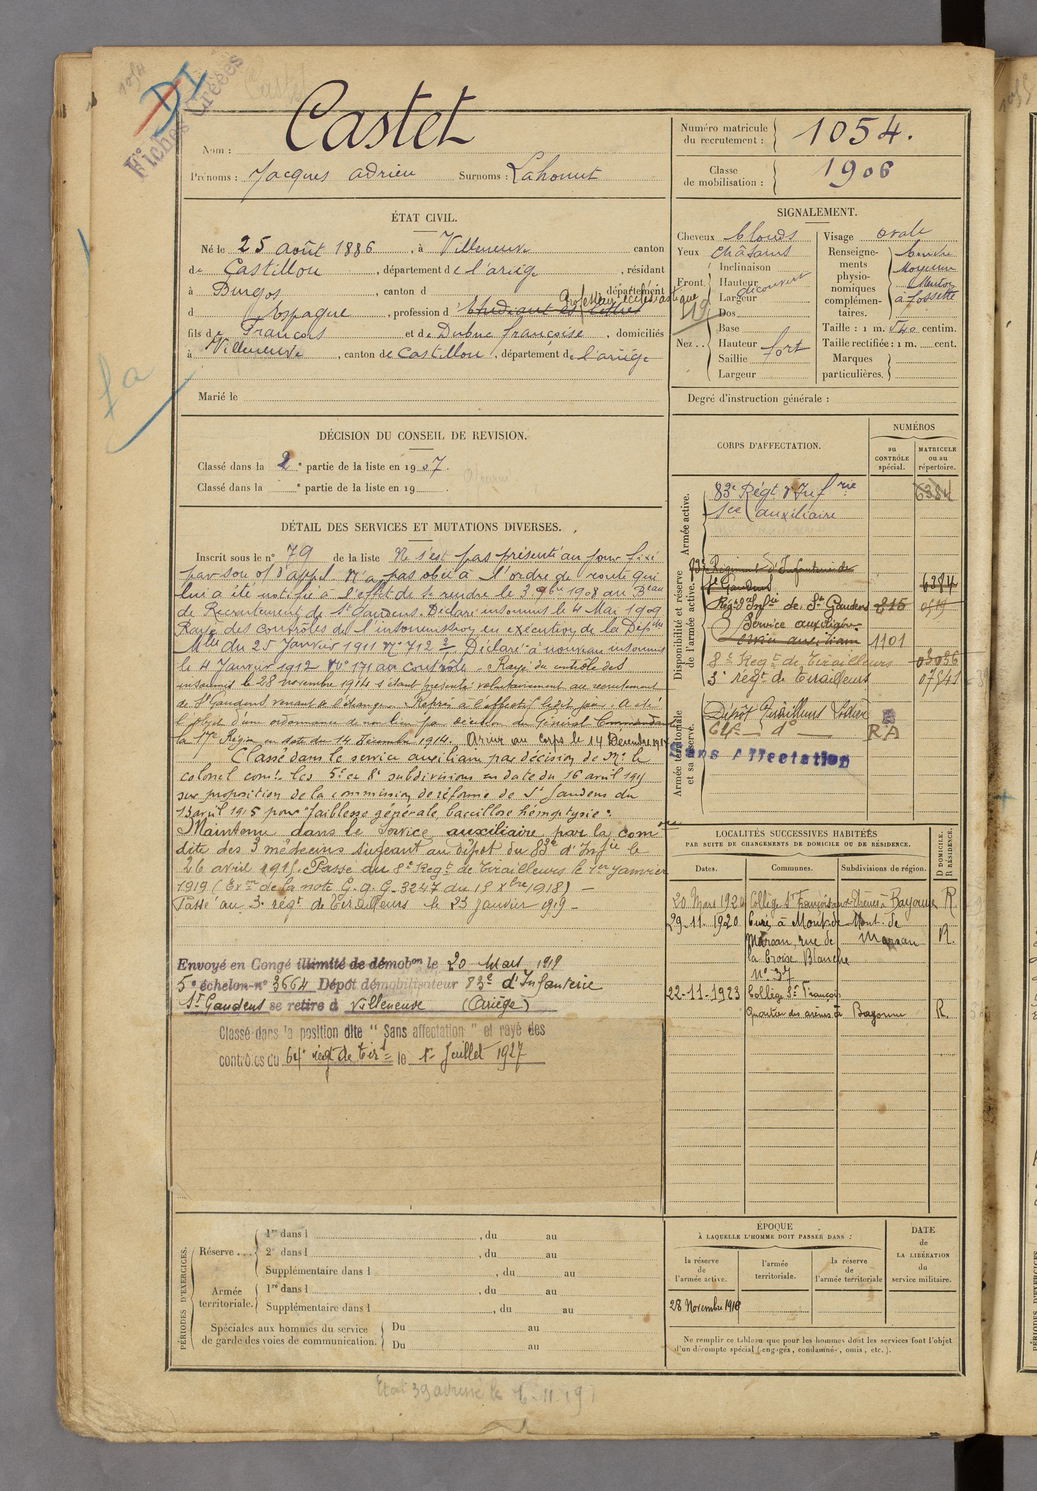 1054
D I
Fiches Créées
Castet
Nom : Castet
Prénoms : Jacques Adrien Surnoms : Lahount
Numéro matricule du recrutement : 1054.
Classe de mobilisation : 1906
ÉTAT CIVIL.
Né le 25 août 1886, à Villeneuve canton
de Castillon, département de l'ariège, résidant
à Burgos, canton d département
d Espagne, profession d' Etudiant ès lettres Professeur ecclésiastique
fils de François et de Dubuc françoise, domiciliés
à Villeneuve, canton de Castillon, département de l'ariége
Marié le
SIGNALEMENT.
Cheveux blonds Visage ovale
Yeux châtains
Front. Inclinaison
Hauteur découvert
Largeur
Nez... Dos
Base
Hauteur fort
Saillie
Largeur
Renseignements physionomiques complémentaires. Menton à fossette
Taille : 1 m. 540 centim.
Taille rectifiée : 1 m. cent.
Marques particulières.
Degré d'instruction générale :
DÉCISION DU CONSEIL DE REVISION.
Classé dans la 2e partie de la liste en 1907.
Classé dans la e partie de la liste en 19 .
DÉTAIL DES SERVICES ET MUTATIONS DIVERSES.
Inscrit sous le n° 79 de la liste Ne s'est pas présenté au jour fixé
par son of d'appel. N'a pas obéi à l'ordre de route qui
lui a été notifié à l'effet de se rendre le 3 9bre 1908 au Beau
de Recrutement de St Gaudens. Déclaré insoumis le 4 Mai 1909
Rayé des contrôles de l'insoumission en exécution de la Dep.
Mlle du 25 Janvier 1911 N° 712 Déclaré à nouveau insoumis
le 4 Janvier 1912 N° 171 au contrôle. Rayé du contrôle des
insoumis le 28 novembre 1914 s'étant présenté volontairement au recrutement
de St Gaudens venant de l'étranger. A été
l'objet d'une ordonnance de non lieu par décision du Général Commandant
la 17e Région en date du 14 Décembre 1914. Arrivé au Corps le 14 Décembre 1914
Classé dans le service auxiliaire par décision de Mr le
colonel comt les 5e et 8e subdivisions en date du 16 avril 1915
sur proposition de la commission de réforme de St Gaudens du
13 avril 1915 pour "faiblesse générale, bacillose hémoptysie".
Maintenu dans le Service auxiliaire par la com on
dite des 3 médecins siégeant au dépôt du 83e d'Infie le
26 avril 1915. Passé au 8e Regt de Tirailleurs le 1er janvier
1919 (Ex on de la note G.Q.G. 3247 du 18 Xbre 1918) —
Passé au 3e régt de Tirailleurs le 23 janvier 1919 —
Envoyé en Congé illimité de démobon le 20 Mars 1919
5e échelon n° 3664 Dépôt démobilisateur 83e d'Infanterie
St Gaudens se retire à Villeneuve (Ariège)
Classé dans la position dite " Sans affectation " et rayé des
contrôles du 64e régt de tirrs le 1er Juillet 1927
CORPS D'AFFECTATION.
NUMÉROS
au CONTRÔLE spécial.
MATRICULE ou au répertoire.
Armée active.
83e Régt d'Infrie 6384
Sce auxiliaire
Disponibilité et réserve de l'armée active.
83e Régiment d'Infanterie de
St Gaudens 6384
Régt d'Infie de St Gaudens 815
Service auxiliaire
Service auxiliaire 1101
8e Regt de Tirailleurs 03036
3e régt de Tirailleurs 07541
Armée territoriale et sa réserve.
Dépôt Tirailleurs
d° RA
Sans Affectation
LOCALITÉS SUCCESSIVES HABITÉES
PAR SUITE DE CHANGEMENTS DE DOMICILE OU DE RÉSIDENCE.
Dates. Communes. Subdivisions de région. D DOMICILE. R RÉSIDENCE.
20 Mars 1920 Collège St François Arènes à Bayonne R
29.11.1920 Curé à Mont de Marsan, rue de la Croix Blanche N° 37 Mont-de Marsan R.
22-11-1923 Collège St François Quartier des arènes à Bayonne R.
PÉRIODES D'EXERCICES.
Réserve... 1re dans l , du au
2e dans l , du au
Supplémentaire dans l , du au
Armée territoriale. 1re dans l , du au
Supplémentaire dans l , du au
Spéciales aux hommes du service de garde des voies de communication. Du au
Du au
ÉPOQUE
À LAQUELLE L'HOMME DOIT PASSER DANS :
la réserve de l'armée active.
l'armée territoriale.
la réserve de l'armée territoriale
DATE de LA LIBÉRATION du service militaire.
28 Novembre 1918
Ne remplir ce tableau que pour les hommes dont les services font l'objet
d'un décompte spécial (engagés, condamnés, omis, etc.).